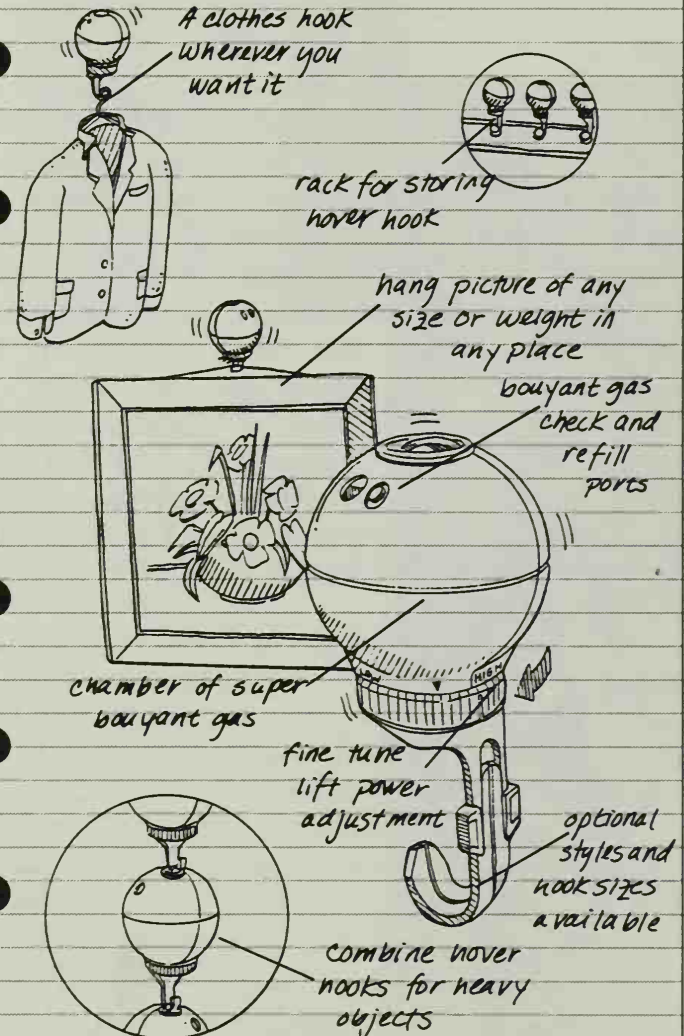 A clothes hook
wherever you
want it
rack for storing
hover hook
hang picture of any
size or weight in
any place
bouyant gas
check and
refill
ports
LOW
HIGH
chamber of super
bouyant gas
fine tune
lift power
adjustment
optional
styles and
hook sizes
available
combine hover
hooks for heavy
objects